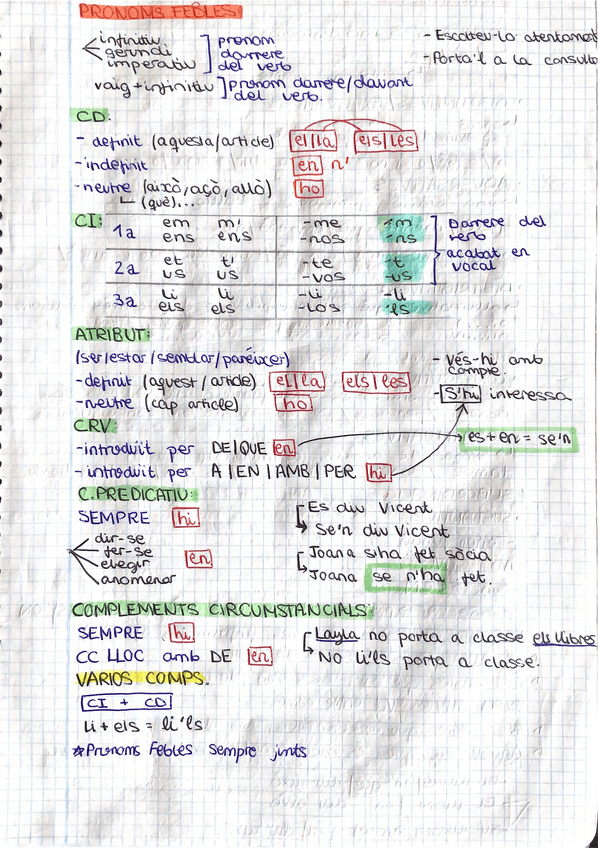 PRONOMS FEBLES
infinitiu
gerundi
imperatiu
pronom
darrere
del verb
- Escolteu-lo atentament
- Porta'l a la consulta
vaig + infinitiu ] pronom darrere/davant
del verb.
CD:
- definit (aquesta/article) el/la els/les
- indefinit en n'
- neutre (això, açò, allò) ho
(què)...
CI:
1a em m' -me 'm
ens ens -nos 'ns
2a et t' -te -t
us us -vos -us
3a li li -li -li
els els -los 'ls
Darrere del
verb
acabat en
vocal
ATRIBUT:
(ser/estar/semblar/paréixer)
- definit (aquest/article) el/la els/les
- neutre (cap article) ho
- Vés-hi amb
compte.
- S'hi interessa
CRV:
- introduït per DE/QUE en
- introduït per A/EN/AMB/PER hi
es + en = se'n
C. PREDICATIU:
SEMPRE hi
dir-se
fer-se
elegir
anomenar
en
Es diu Vicent
Se'n diu Vicent
Joana s'ha fet sòcia
Joana se n'ha fet.
COMPLEMENTS CIRCUMSTANCIALS:
SEMPRE hi
CC LLOC amb DE en
Layla no porta a classe els llibres
No li'ls porta a classe.
VARIOS COMPS.
CI + CD
li + els = li'ls
*Pronoms Febles sempre junts